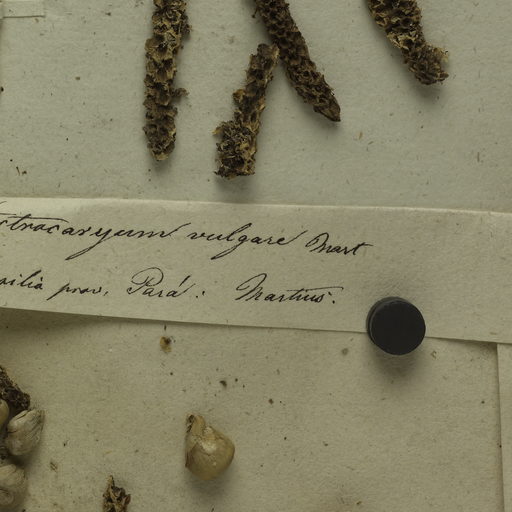 strocaryum vulgare Mart
silia prov. Pará: Martius.